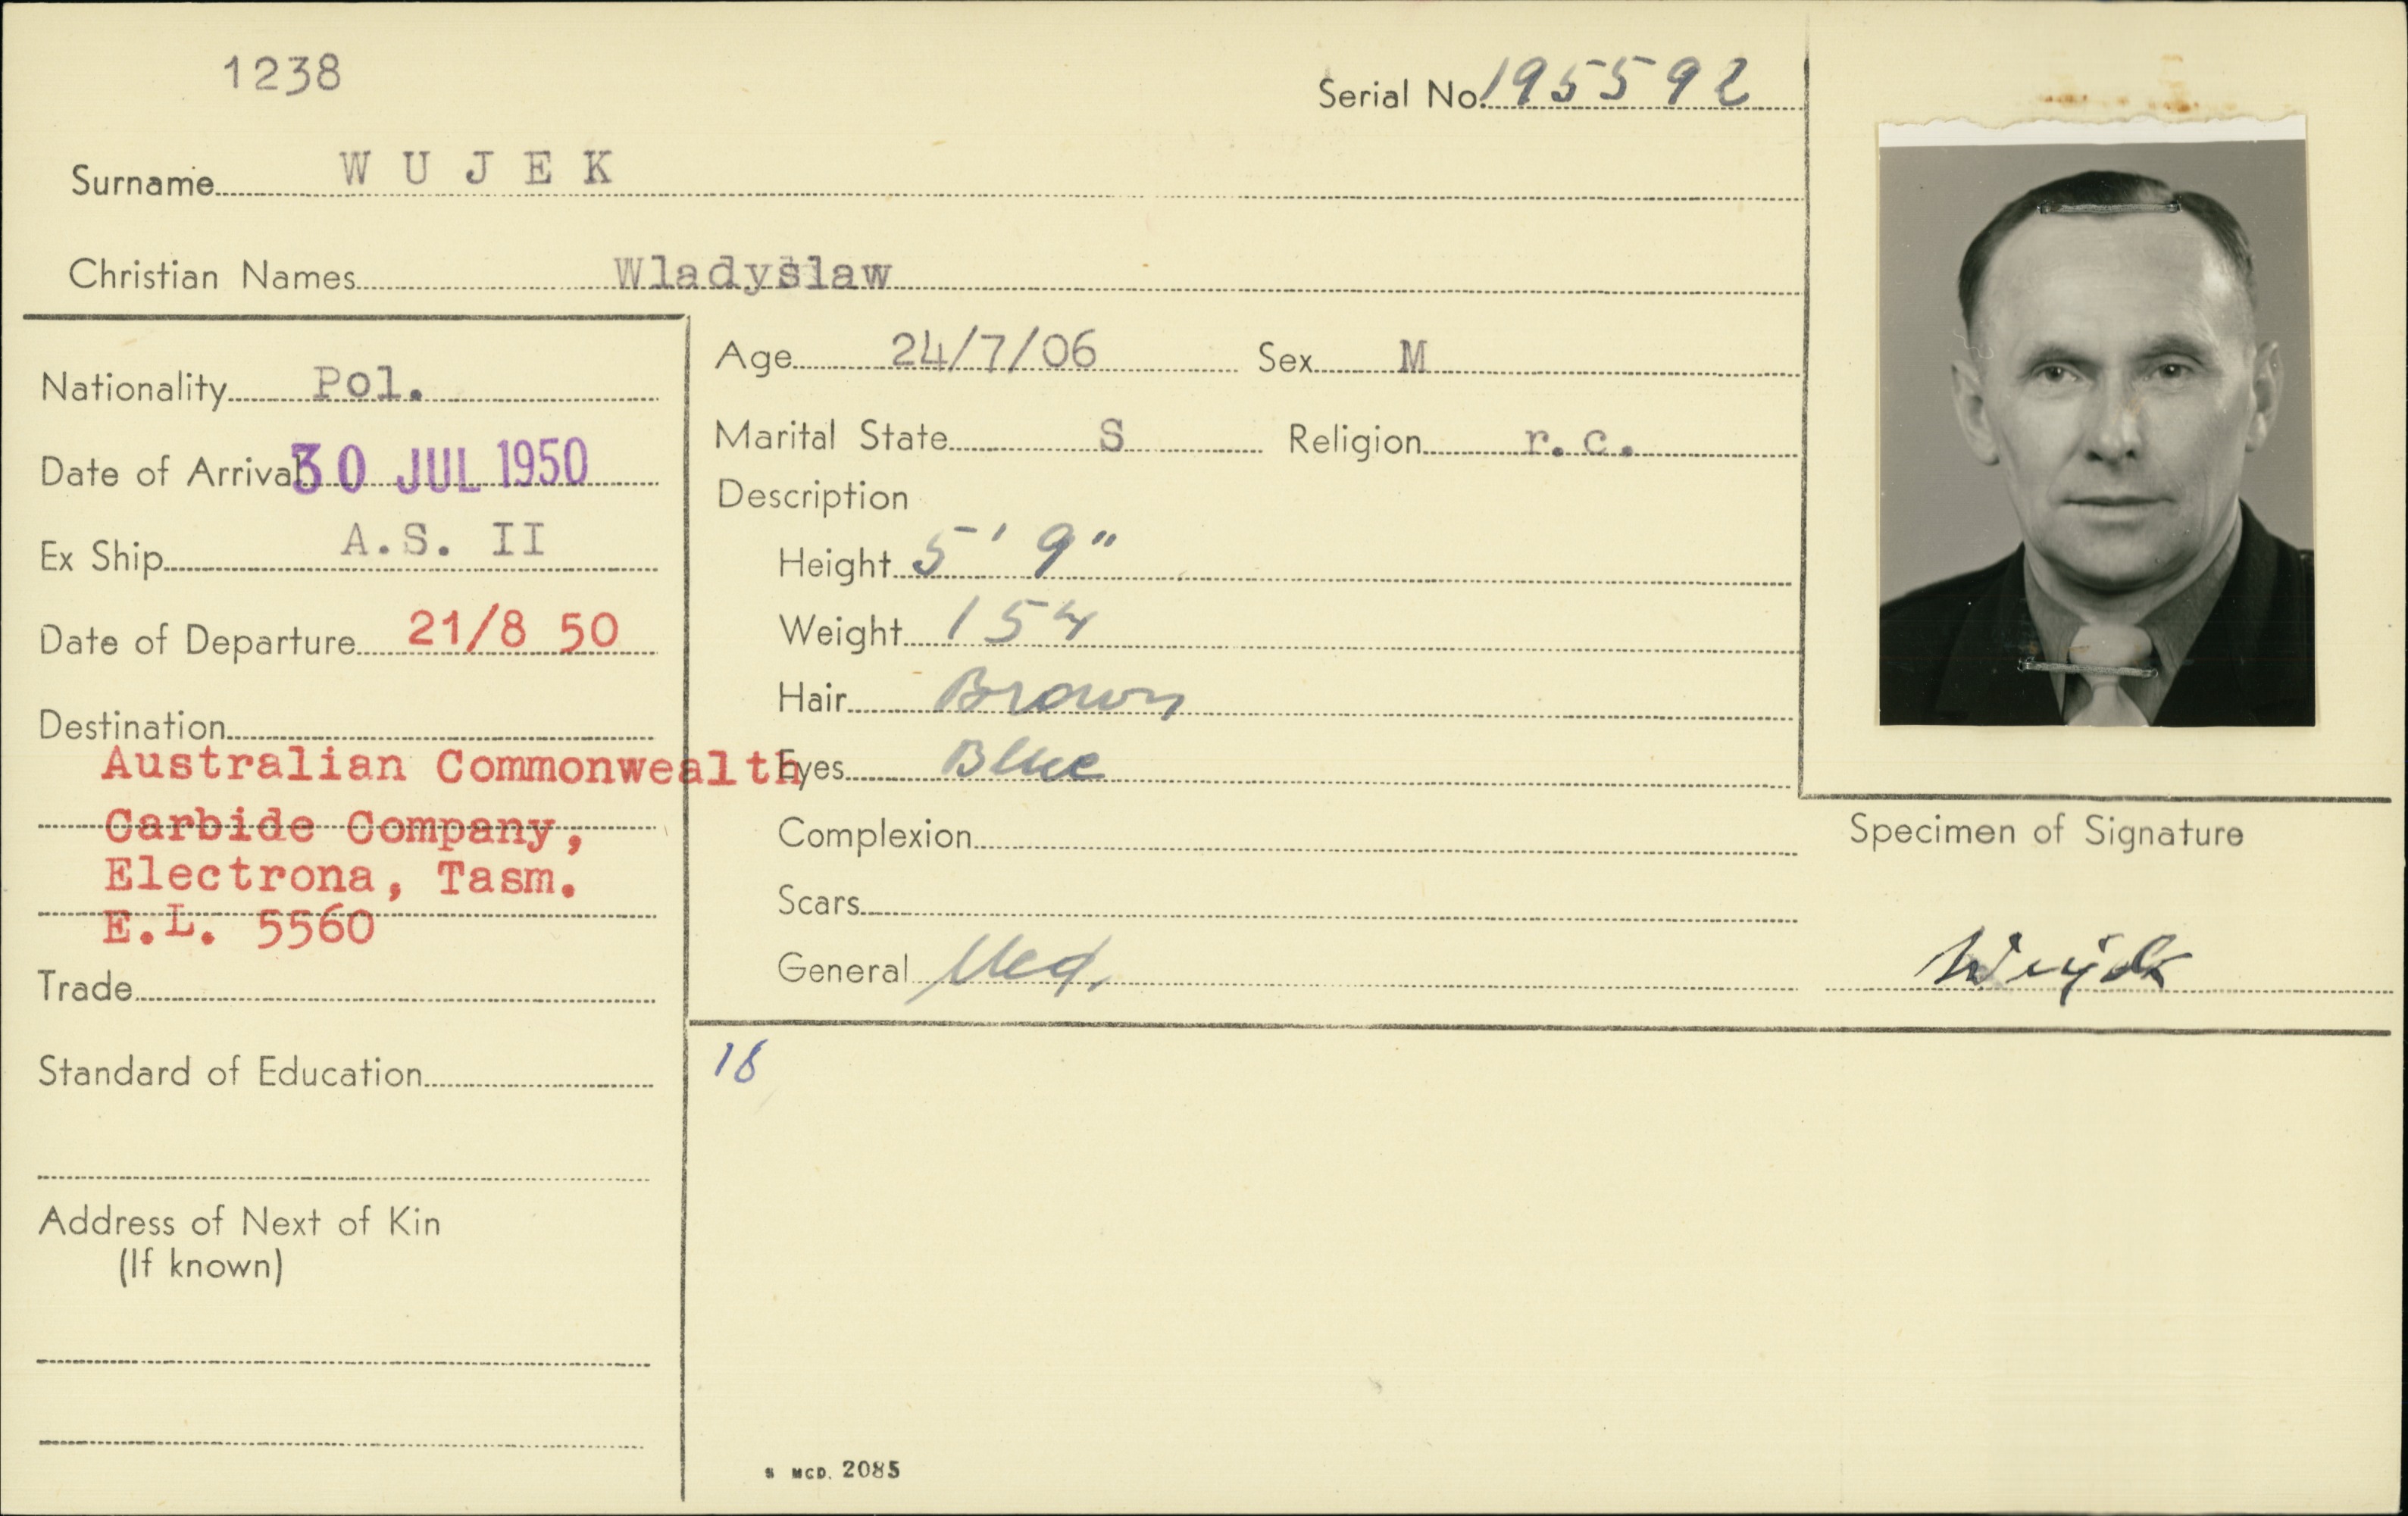 1238
Serial No. 195592
Surname W U J E K
Christian Names Wladyslaw
Nationality Pol.
Date of Arrival 30 JUL 1950
Ex Ship A.S. II
Date of Departure 21/8 50
Destination
Australian Commonwealth
Carbide Company,
Electrona, Tasm.
E.L. 5560
Trade
Standard of Education
Address of Next of Kin
(If known)
Age 24/7/06 Sex M
Marital State S Religion r.c.
Description
Height 5' 9"
Weight 154
Hair Brown
Eyes Blue
Complexion
Scars
General Med.
Specimen of Signature
Wujek
18
S MCD. 2085